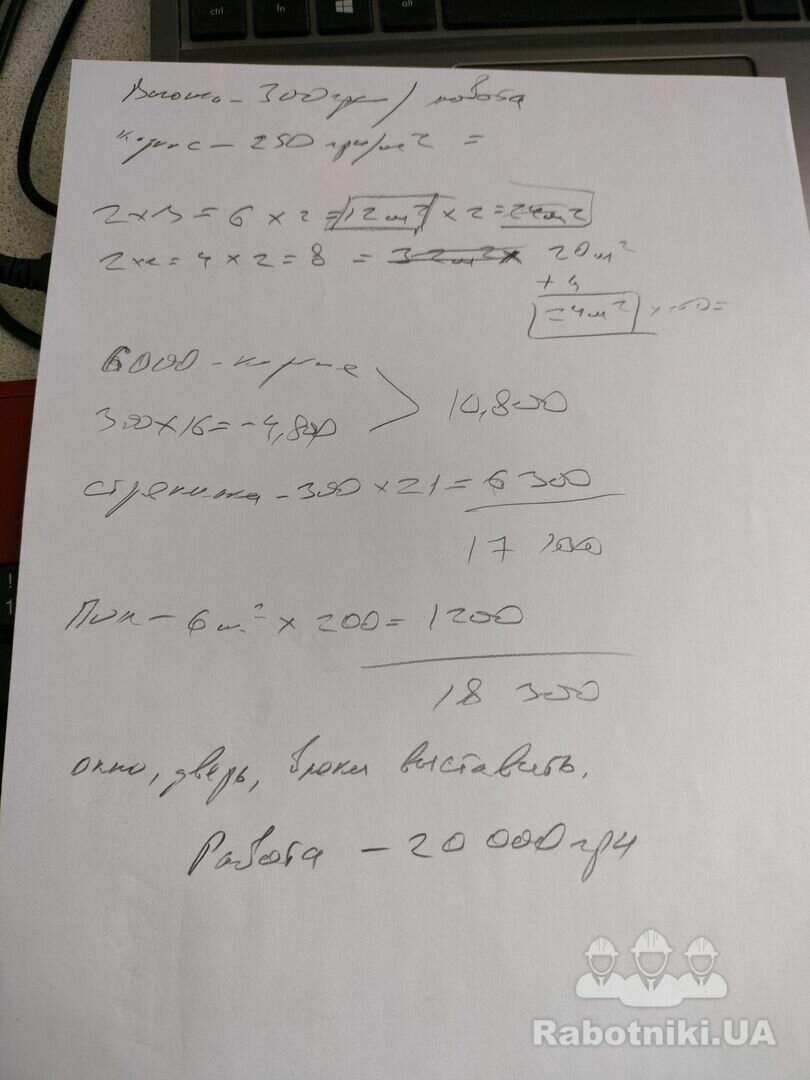 ctrl fn alt
300грн / робота
каркас - 250 грн/м2 =
2×3=6 × 2 = 12м2 × 2 = 24м2
2×2=4 × 2 = 8 = 32м2 20м2
+4
24м2 × 250=
6000 - каркас
300×16=-4,800 10,800
стяжка - 300 × 21 = 6 300
17 100
Пол - 6м2 × 200 = 1200
18 300
окно, дверь, блоки выставить.
Работа - 20 000 грн
Rabotniki.UA